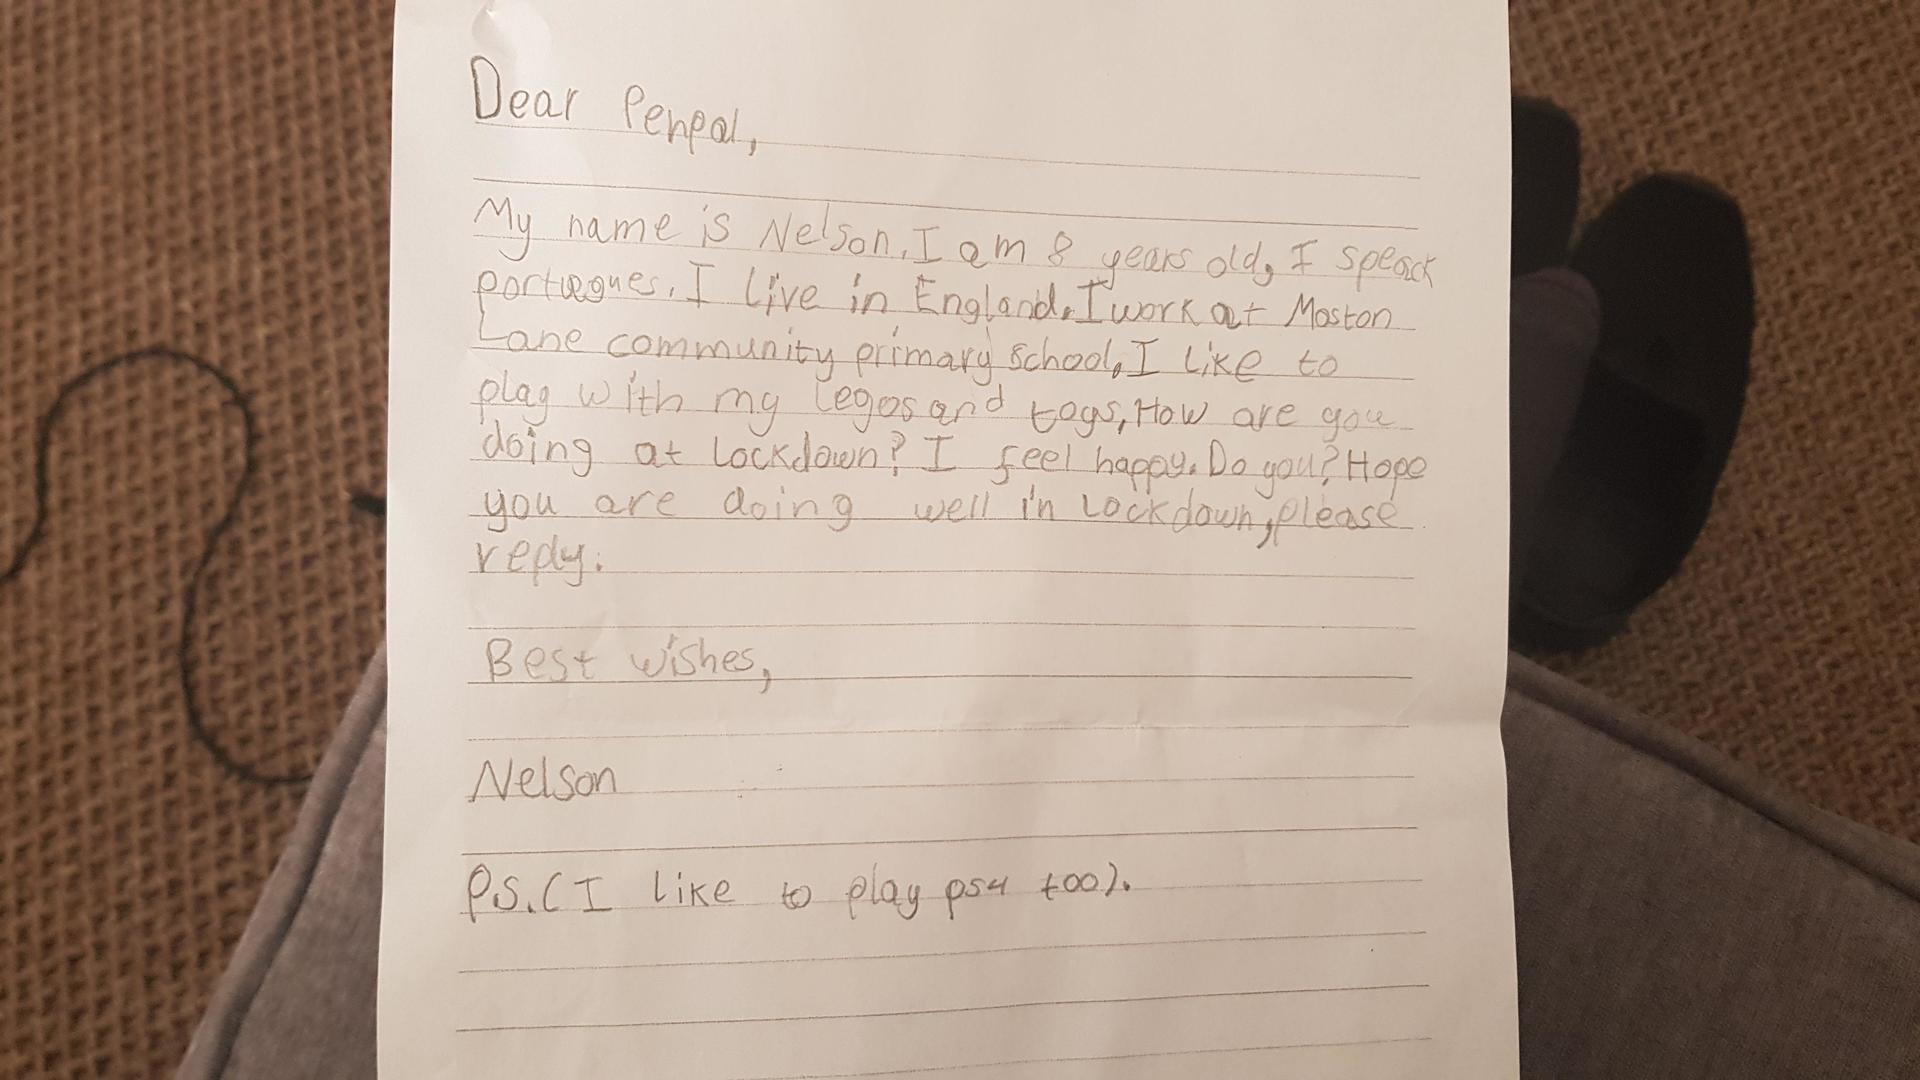 Dear Penpal,
My name is Nelson. I am 8 years old, I speack
portuegues. I live in England. I work at Moston
Lane community primary school, I like to
play with my legos and toys, How are you
doing at lockdown? I feel happy. Do you? Hope
you are doing well in lockdown, please
reply.
Best wishes,
Nelson
P.S. ( I like to play ps4 too).